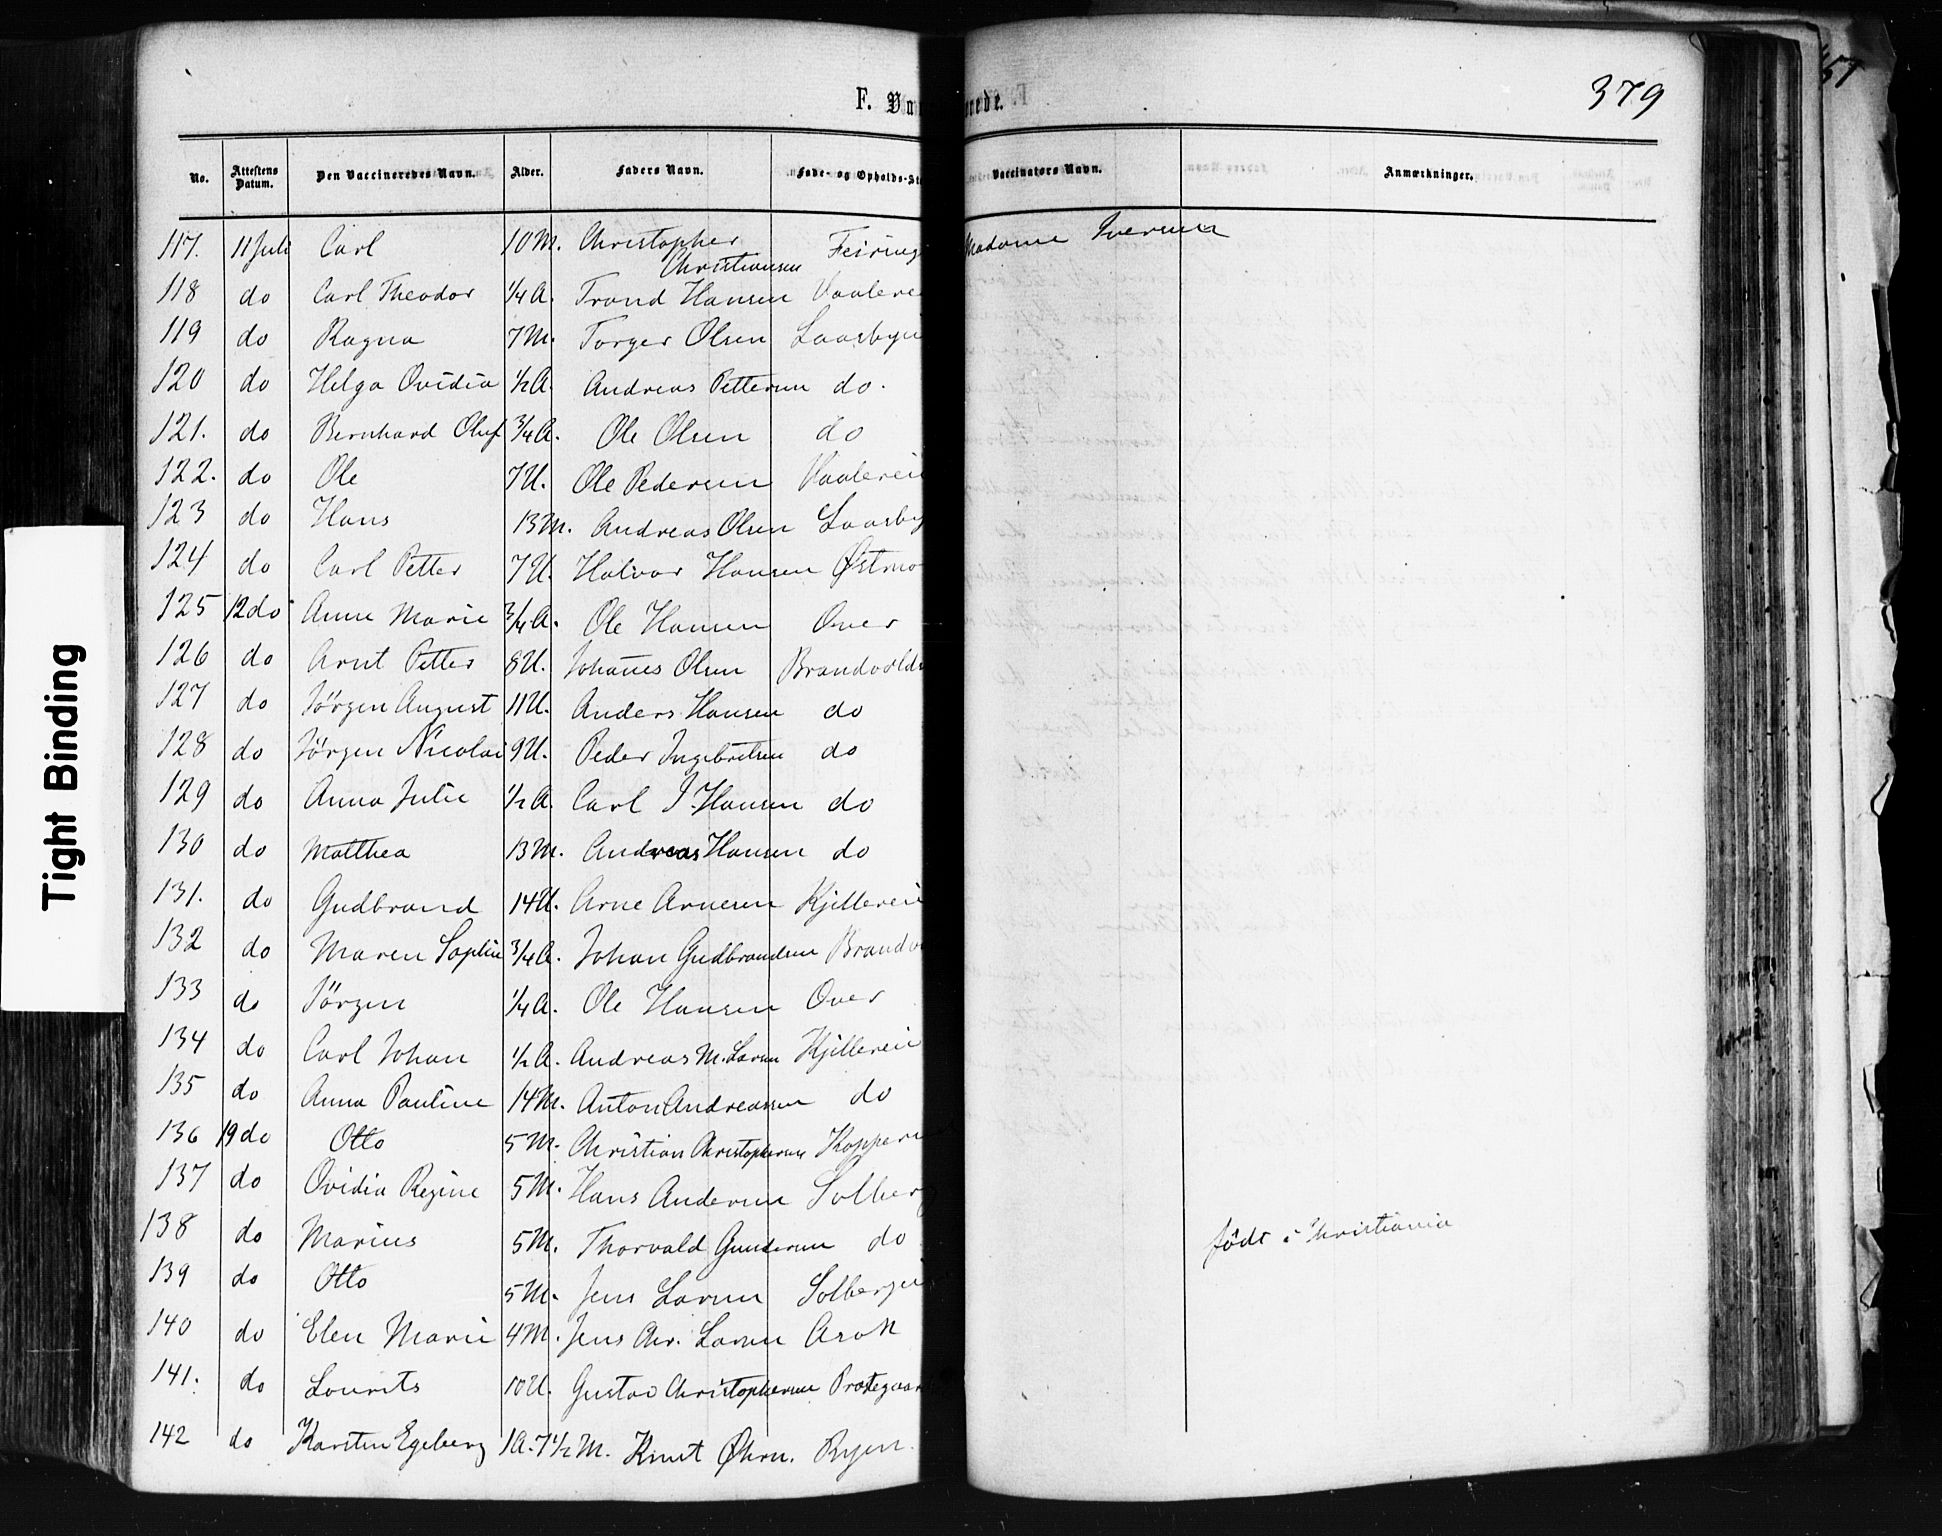 Tight Binding
F. Va erede.
379
57
No. Attestens Datum. Den Vaccineredes Navn. Alder. Faders Navn. Føde- og Opholds-St Vaccinators Navn. Anmærkninger.
117. 11 Juli Carl 10 M. Christopher Christiansen Feiring Madame Iversen
118 do Carl Theodor 1/4 A. Trond Hansen Vaalerei
119 do Ragna 7 M. Torger Olsen Laasbyei
120 do Helga Ovidia 1/2 A. Andreas Pettersen do.
121. do Bernhard Oluf 3/4 A. Ole Olsen do
122. do Ole 7 U. Ole Pedersen Vaalerei
123 do Hans 13 M. Andreas Olsen Laasby
124 do Carl Petter 7 U. Halvor Hansen Østmo
125 12 do Anne Marie 3/4 A. Ole Hansen Over
126 do Arnt Petter 8 U. Johanes Olsen Brandvolds
127 do Jörgen August 11 U. Anders Hansen do
128 do Jörgen Nicolai 9 U. Peder Ingebretsen do
129 do Anna Julie 1/2 A. Carl J. Hansen do
130 do Matthea 13 M. Andreas Hansen do
131. do Gudbrand 14 U. Arne Arnesen Kjellerei
132 do Maren Sophie 3/4 A. Johan Gudbrandsen Brandv
133 do Jörgen 1/4 A. Ole Hansen Over
134 do Carl Johan 1/2 A. Andreas M. Larsen Kjellerei
135 do Anna Pauline 14 M. Anton Andreassen do
136 19 do Otto 5 M. Christian Christophersen Kopper
137 do Ovidia Regine 5 M. Hans Andersen Solberg
138 do Marius 5 M. Thorvald Gundersen do födt i Christiania
139 do Otto 5 M. Jens Larsen Solbergei
140 do Elen Marie 4 M. Jens Chr. Larsen Asak
141. do Lourits 10 U. Gustav Christophersen Prestegaar
142 do Karsten Egeberg 1 A. 7 1/2 M. Knut Ryen.